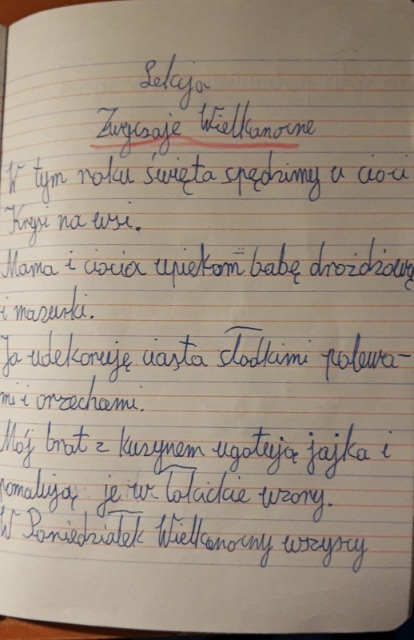 Lekcja
Zwyczaje Wielkanocne
W tym roku święta spędzimy u cioci
Krysi na wsi.
Mama i ciocia upieką babę drożdżową
i mazurki.
Ja udekoruję ciasta słodkimi polewa-
mi i orzechami.
Mój brat z kuzynem ugotują jajka i
pomalują je w
wzory.
W Poniedziałek Wielkanocny wszyscy